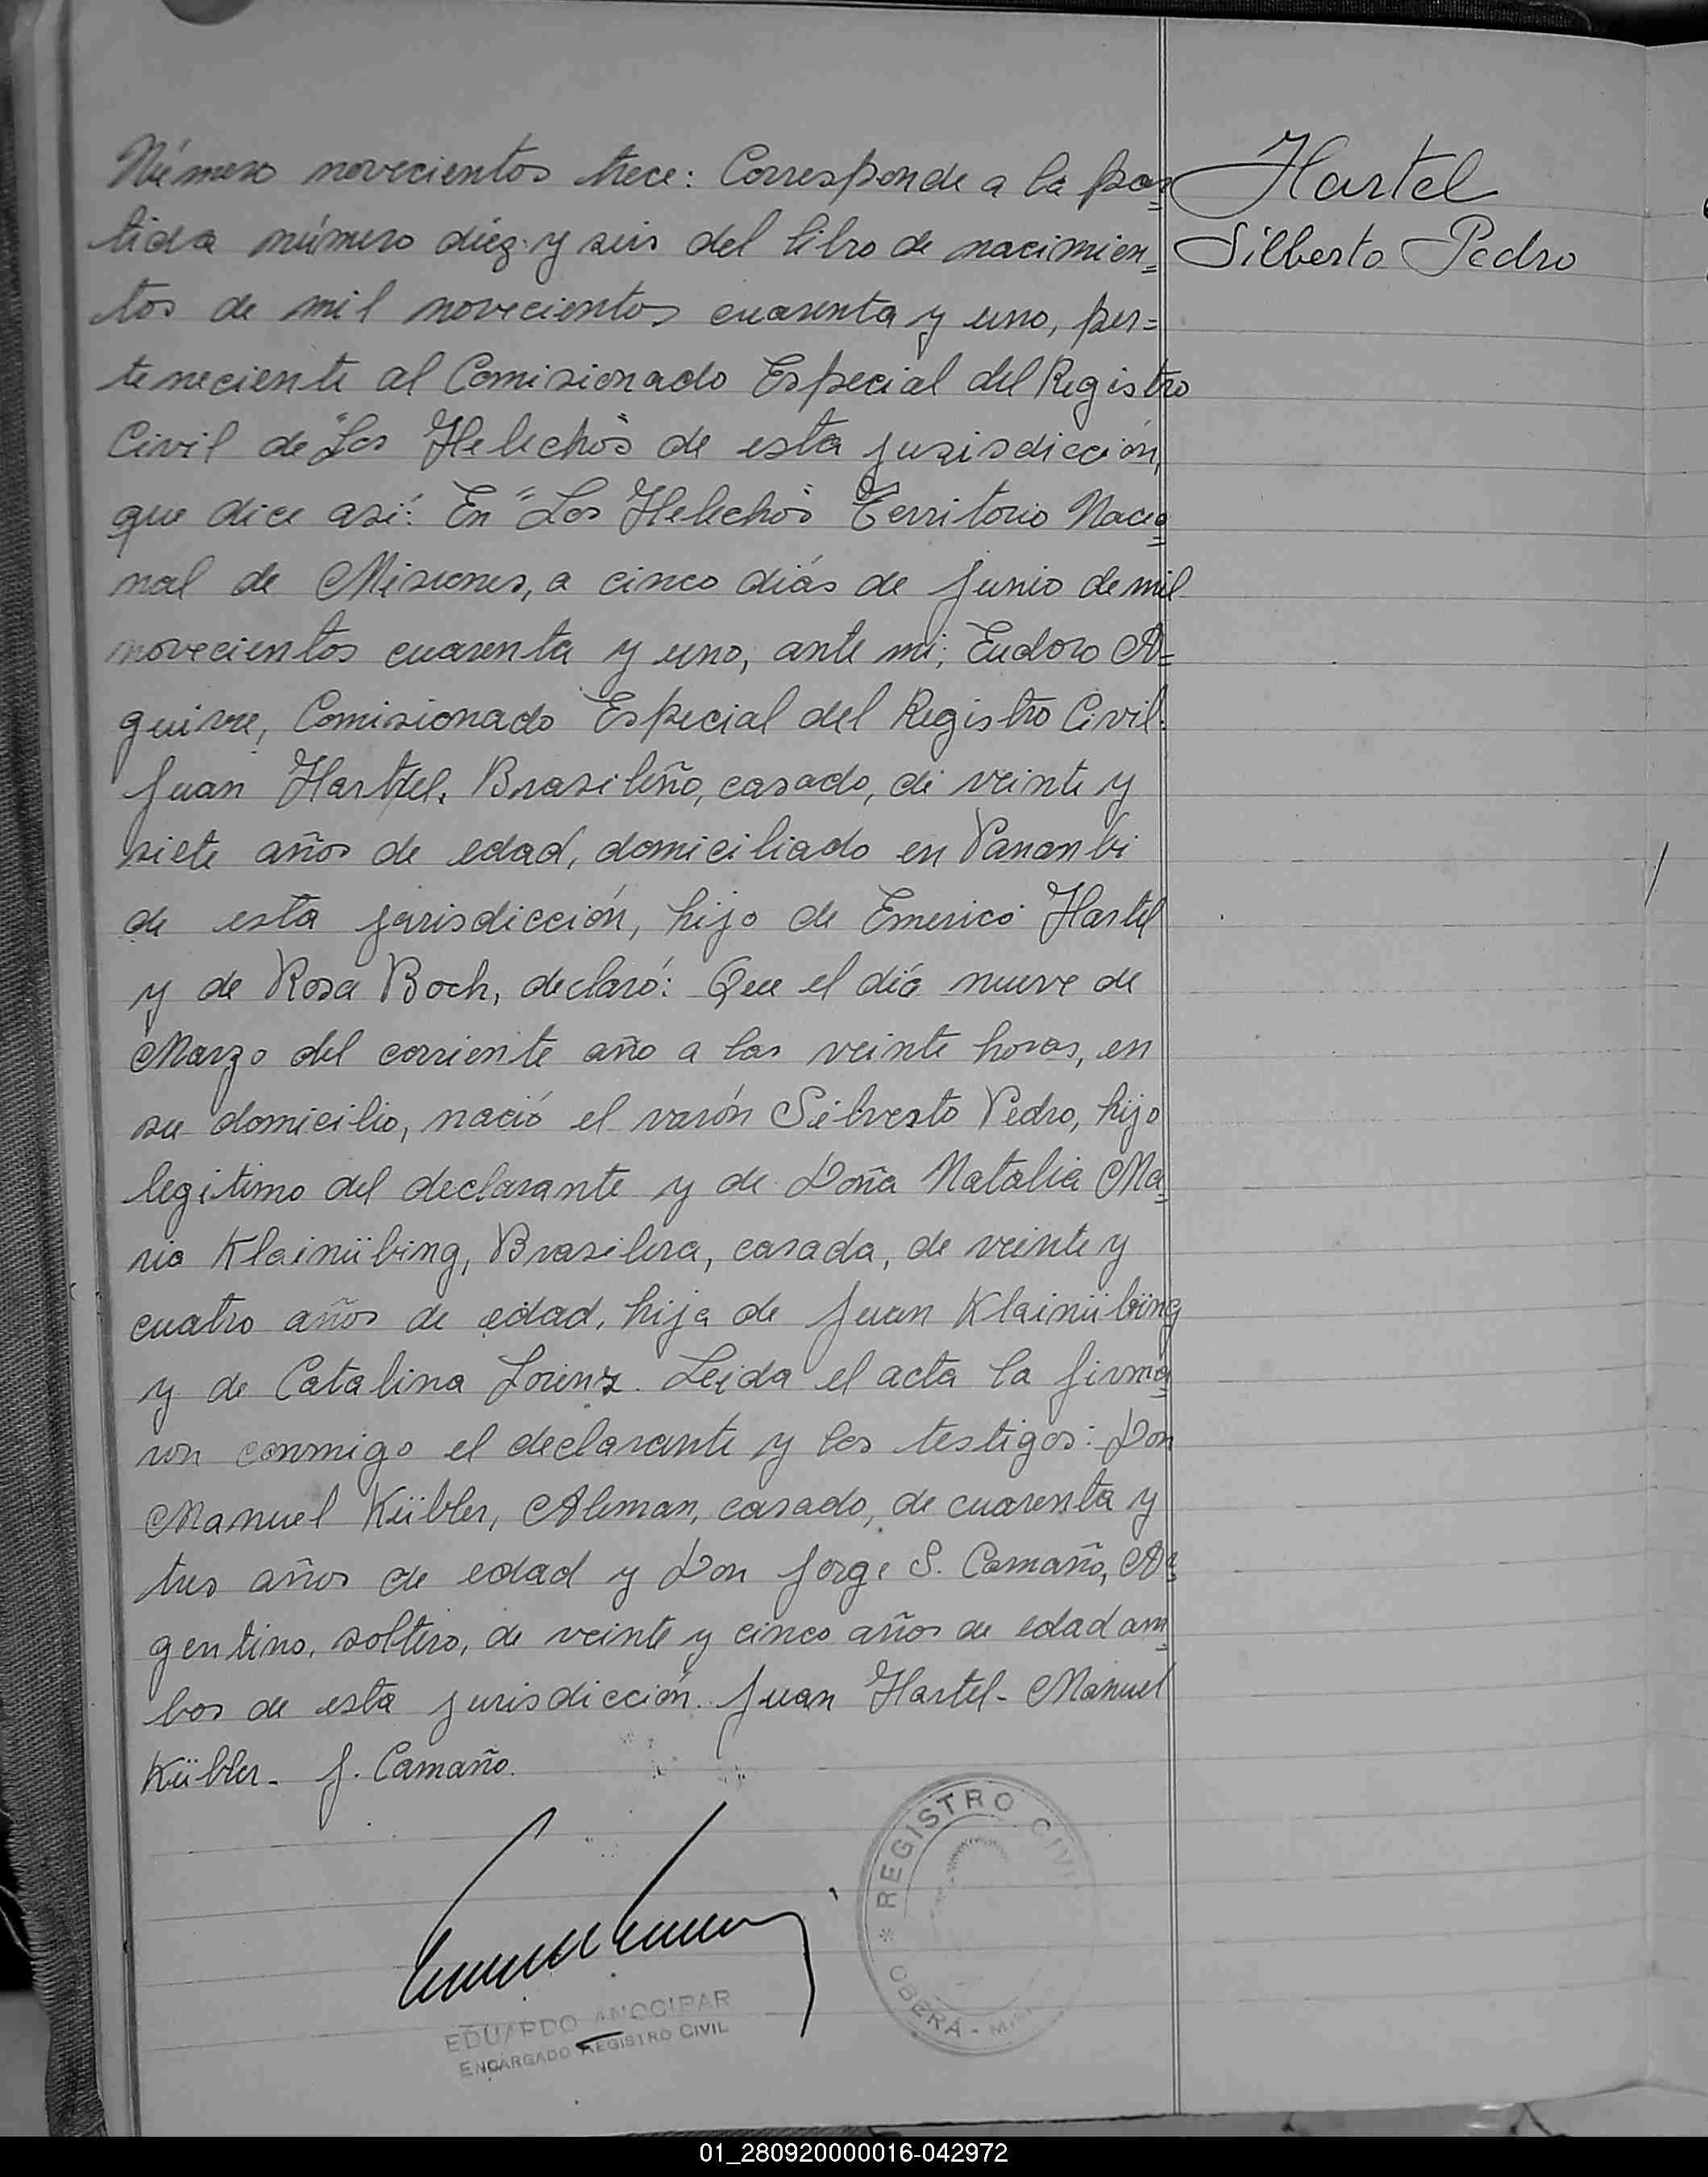 Número novecientos trece: Corresponde a la par=
tida número diez y seis del libro de nacimien=
tos de mil novecientos cuarenta y uno, per=
teneciente al Comisionado Especial del Registro
Civil de "Los Helechos" de esta jurisdicción,
que dice así: En "Los Helechos" Territorio Nacio=
nal de Misiones, a cinco días de Junio de mil
novecientos cuarenta y uno, ante mi; Eudoro A=
guirre, Comisionado Especial del Registro Civil.
Juan Hartel. Brasileño, casado, de veinte y
siete años de edad, domiciliado en Panambi
de esta jurisdicción, hijo de Emerico Hartel
y de Rosa Boch, declaró: Que el día nueve de
Marzo del corriente año a las veinte horas, en
su domicilio, nació el varón Silverto Pedro, hijo
legitimo del declarante y de Doña Natalia Ma=
ria Klainübing, Brasilera, casada, de veinte y
cuatro años de edad, hija de Juan Klainübing
y de Catalina Lorenz. Leida el acta la firma=
ron conmigo el declarante y los testigos: Don
Manuel Kübler, Aleman, casado, de cuarenta y
tres años de edad y Don Jorge S. Camaño, Ar=
gentino, soltero, de veinte y cinco años de edad am=
bos de esta jurisdicción. Juan Hartel- Manuel
Kübler- J. Camaño.
Hartel
Silberto Pedro
EDUARDO ANOCIBAR
ENCARGADO REGISTRO CIVIL
* REGISTRO CIVIL
OBERÁ -
01_280920000016-042972